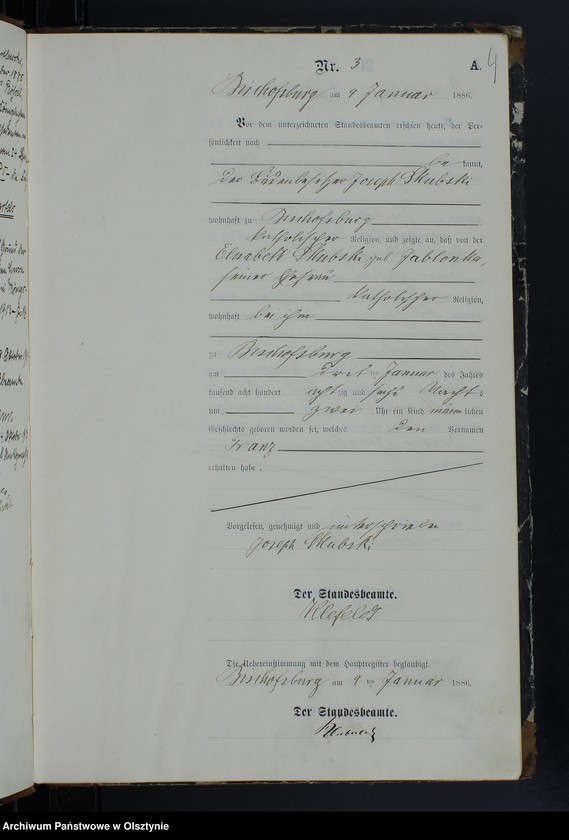 Nr. 3
A.
4
Bischofsburg am 9 Januar 1886.
Vor dem unterzeichneten Standesbeamten erschien heute, der Per-
sönlichkeit nach
be kannt,
der Budenbesitzer Joseph Skubski
wohnhaft zu Bischofsburg
katholischer Religion, und zeigte an, daß von der
Elisabeth Skubski geb. Jablonka,
seiner Ehefrau
katholischer Religion,
wohnhaft bei ihm
zu Bischofsburg
am drit ten Januar des Jahres
tausend acht hundert achtzig und sechs Nachts
um zwei Uhr ein Kind männlichen
Geschlechts geboren worden sei, welches den Vornamen
Franz
erhalten habe.
Vorgelesen, genehmigt und unterschrieben
Joseph Skubski
Der Standesbeamte.
Klefeldt
Die Uebereinstimmung mit dem Hauptregister beglaubigt.
Bischofsburg am 9 ten Januar 1886.
Der Standesbeamte.
Archiwum Państwowe w Olsztynie